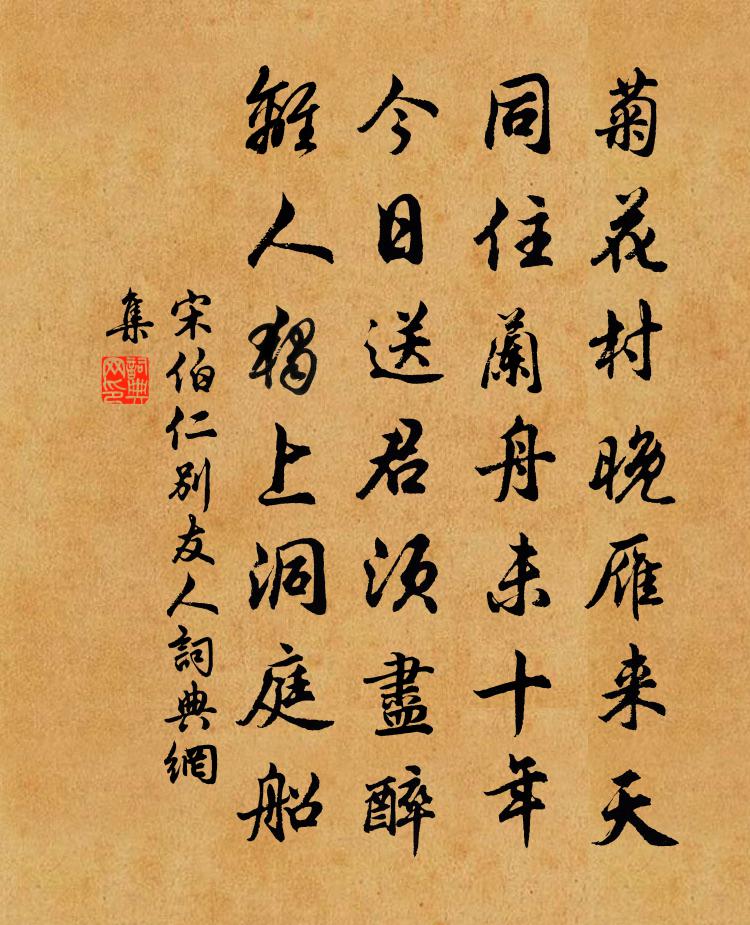 菊花村晚雁来天
同住蘭舟未十年
今日送君須盡醉
離人獨上洞庭船
宋伯仁別友人詞典網
集
詞典
网印